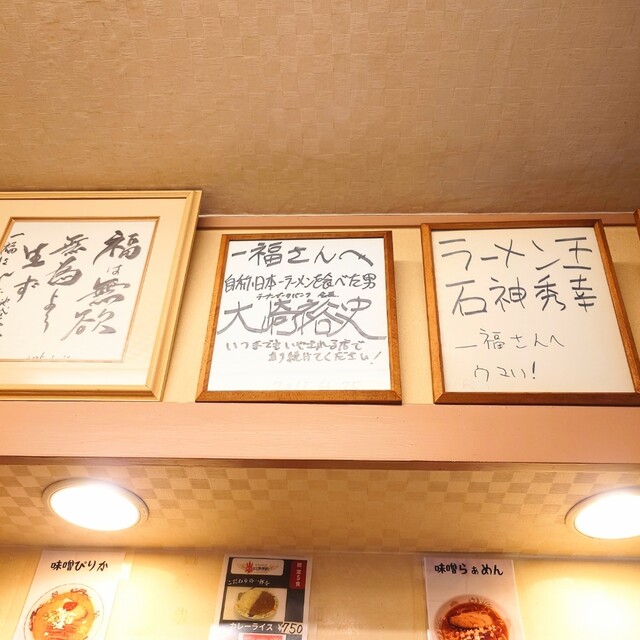 福は無欲
無為より
生ず
一福さんへ
自称日本一ラーメンを食べた男
大崎裕史
いつまでもいやされる店で
あり続けてください!
ラーメン王
石神秀幸
一福さんへ
ウマい!
味噌ぴりか
限定5食
こだわりの一杯を
カレーライス ¥750
味噌らぁめん